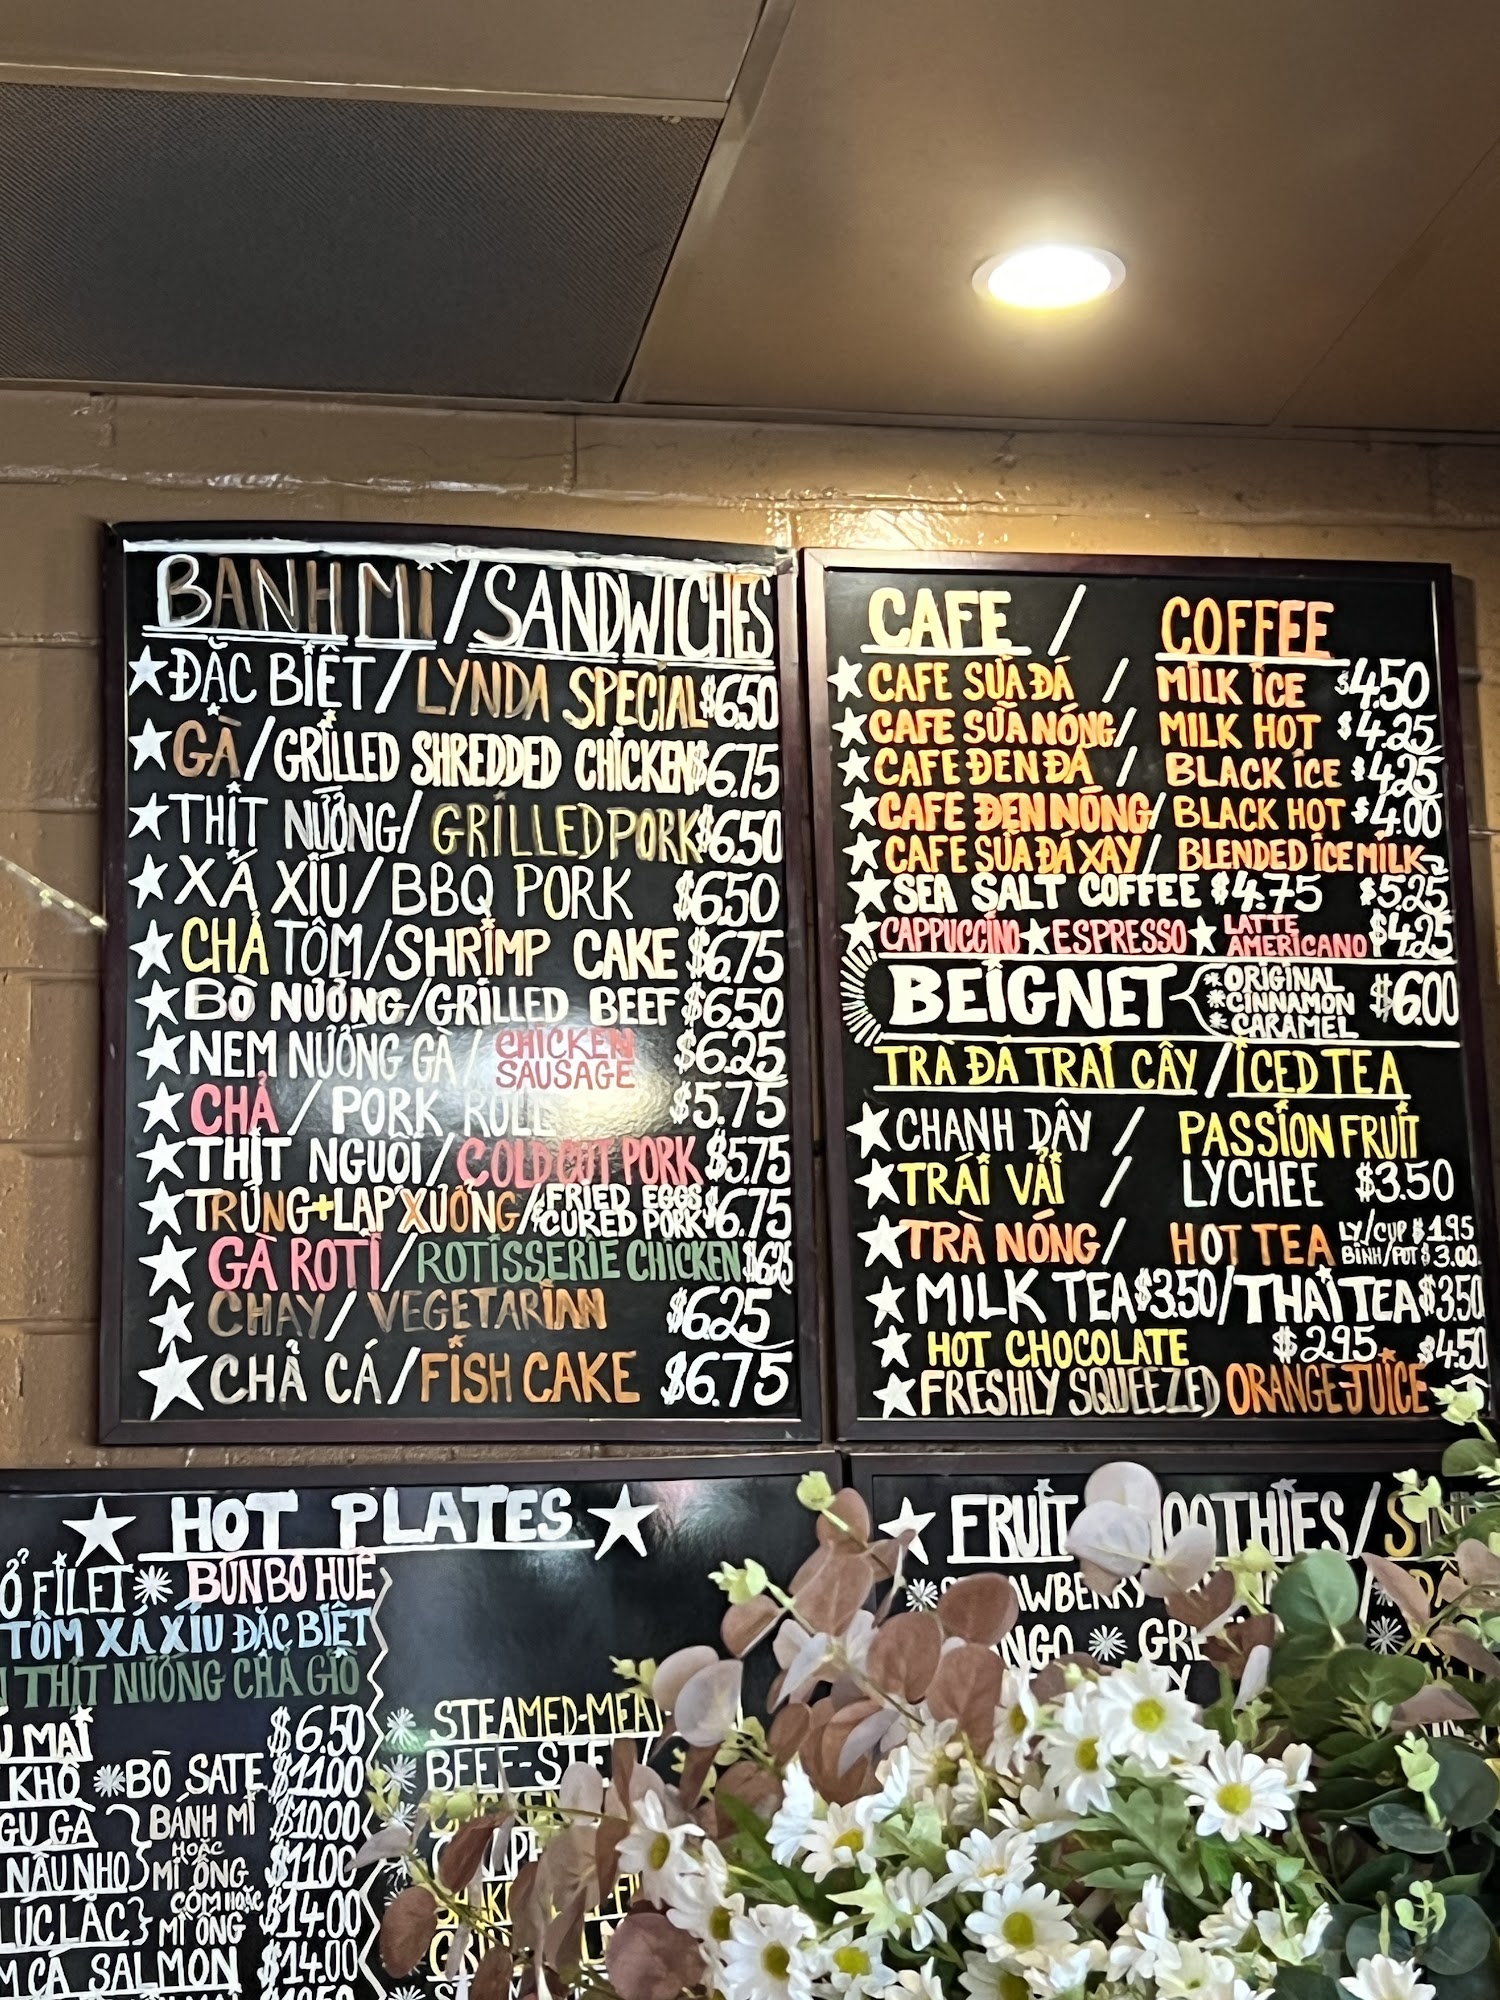 BANH MÌ / SANDWICHES
ĐẶC BIỆT / LYNDA SPECIAL $6.50
GÀ / GRILLED SHREDDED CHICKEN $6.75
THỊT NƯỚNG / GRILLED PORK $6.50
XÁ XÍU / BBQ PORK $6.50
CHẢ TÔM / SHRIMP CAKE $6.75
BÒ NƯỚNG / GRILLED BEEF $6.50
NEM NƯỚNG GÀ / CHICKEN SAUSAGE $6.25
CHẢ / PORK ROLL $5.75
THỊT NGUỘI / COLD CUT PORK $5.75
TRỨNG + LAP XƯỞNG / FRIED EGGS CURED PORK $6.75
GÀ ROTI / ROTISSERIE CHICKEN $6.25
CHAY / VEGETARIAN $6.25
CHẢ CÁ / FISH CAKE $6.75
CAFE / COFFEE
CAFE SỮA ĐÁ / MILK ICE $4.50
CAFE SỮA NÓNG / MILK HOT $4.25
CAFE ĐEN ĐÁ / BLACK ICE $4.25
CAFE ĐEN NÓNG / BLACK HOT $4.00
CAFE SỮA ĐÁ XAY / BLENDED ICE MILK
SEA SALT COFFEE $4.75 $5.25
CAPPUCCINO ESPRESSO LATTE AMERICANO $4.25
BEIGNET ORIGINAL CINNAMON CARAMEL $6.00
TRÀ ĐÁ TRÁI CÂY / ICED TEA
CHANH DÂY / PASSION FRUIT
TRÁI VẢI / LYCHEE $3.50
TRÀ NÓNG / HOT TEA LY/CUP $1.95
BÌNH/POT $3.00
MILK TEA $3.50 / THAI TEA $3.50
HOT CHOCOLATE $2.95 $4.50
FRESHLY SQUEEZED ORANGE JUICE
HOT PLATES
FILET BÚN BÒ HUẾ
TÔM XÁ XÍU ĐẶC BIỆT
THỊT NƯỚNG CHẢ GIÒ
MẠI $6.50
KHÔ BÒ SATE $11.00
GÀ BÁNH MÌ $10.00
HOẶC
NẤU NHO MÌ ỐNG $11.00
CƠM HOẶC
LÚC LẮC MÌ ỐNG $14.00
CÁ SALMON $14.00
STEAMED-MEA
FRUIT SMOOTHIES /
STRAWBERRY